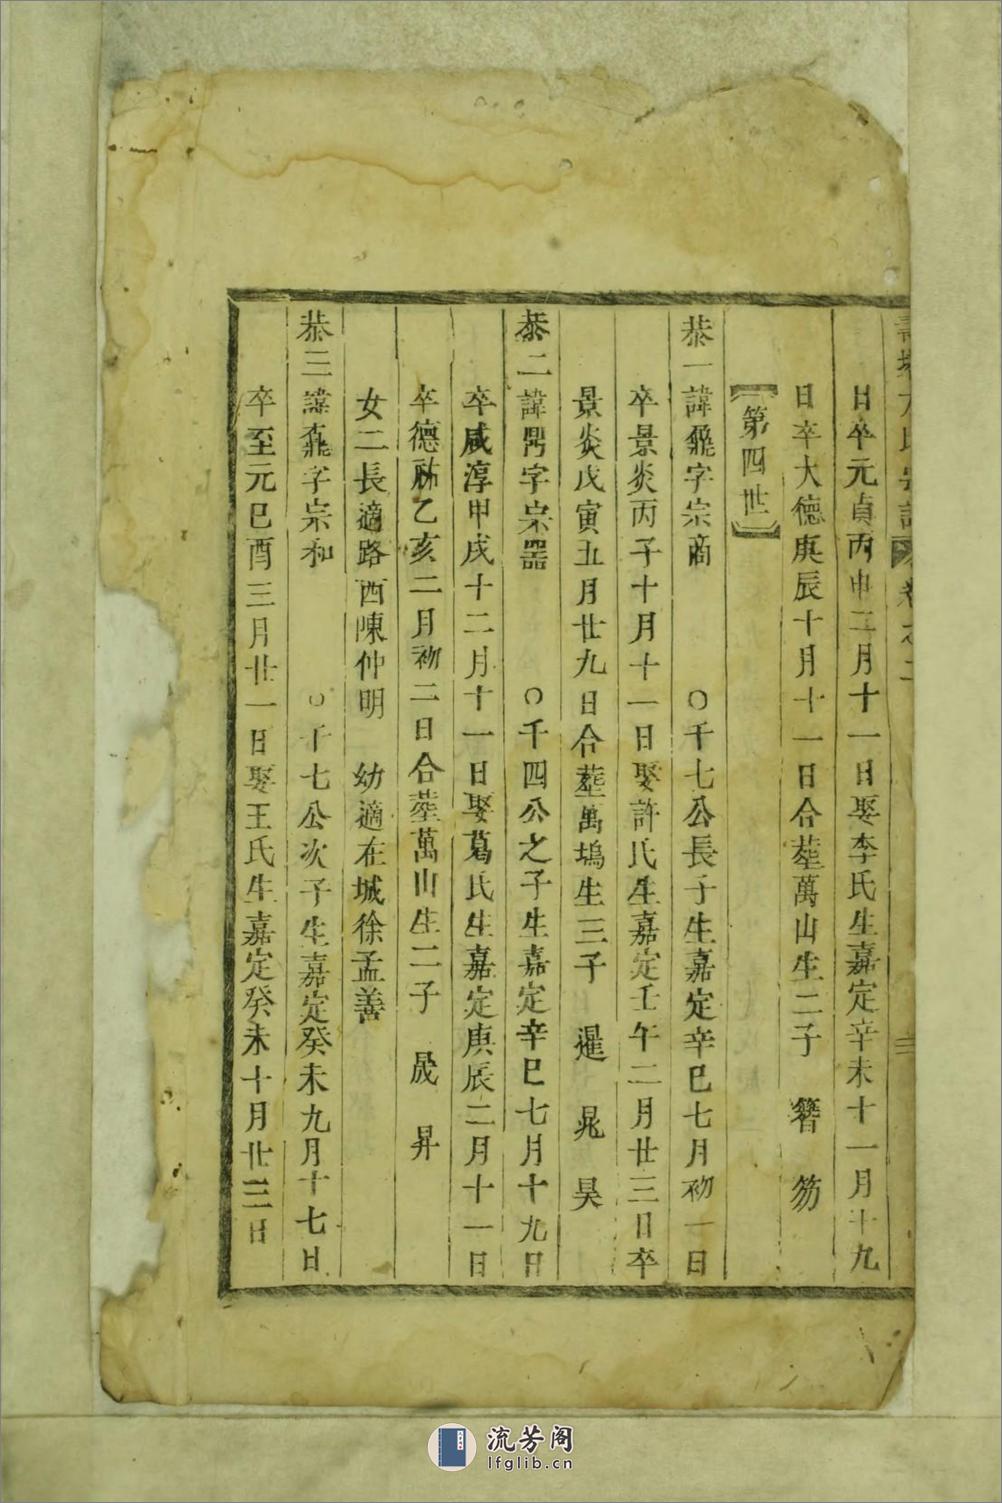 方氏宗譜 卷之二
日卒元貞丙申二月十一日娶李氏生嘉定辛未十一月十九
日卒大德庚辰十月十一日合塟萬山生二子 簪 笏
【第四世】
恭一諱鼐字宗商 ○千七公長子生嘉定辛巳七月初一日
卒景炎丙子十月十一日娶許氏生嘉定壬午二月廿三日卒
景炎戊寅五月廿九日合塟萬塢生三子 暹 晁 昊
恭二諱鼎字宗器 ○千四公之子生嘉定辛巳七月十九日
卒咸淳甲戌十二月十一日娶葛氏生嘉定庚辰二月十一日
卒德祐乙亥二月初二日合塟萬山生二子 晟 昇
女二長適路西陳仲明 幼適在城徐孟善
恭三諱鼒字宗和 ○千七公次子生嘉定癸未九月十七日
卒至元己酉三月廿一日娶王氏生嘉定癸未十月廿三日
流芳阁
lfglib.cn